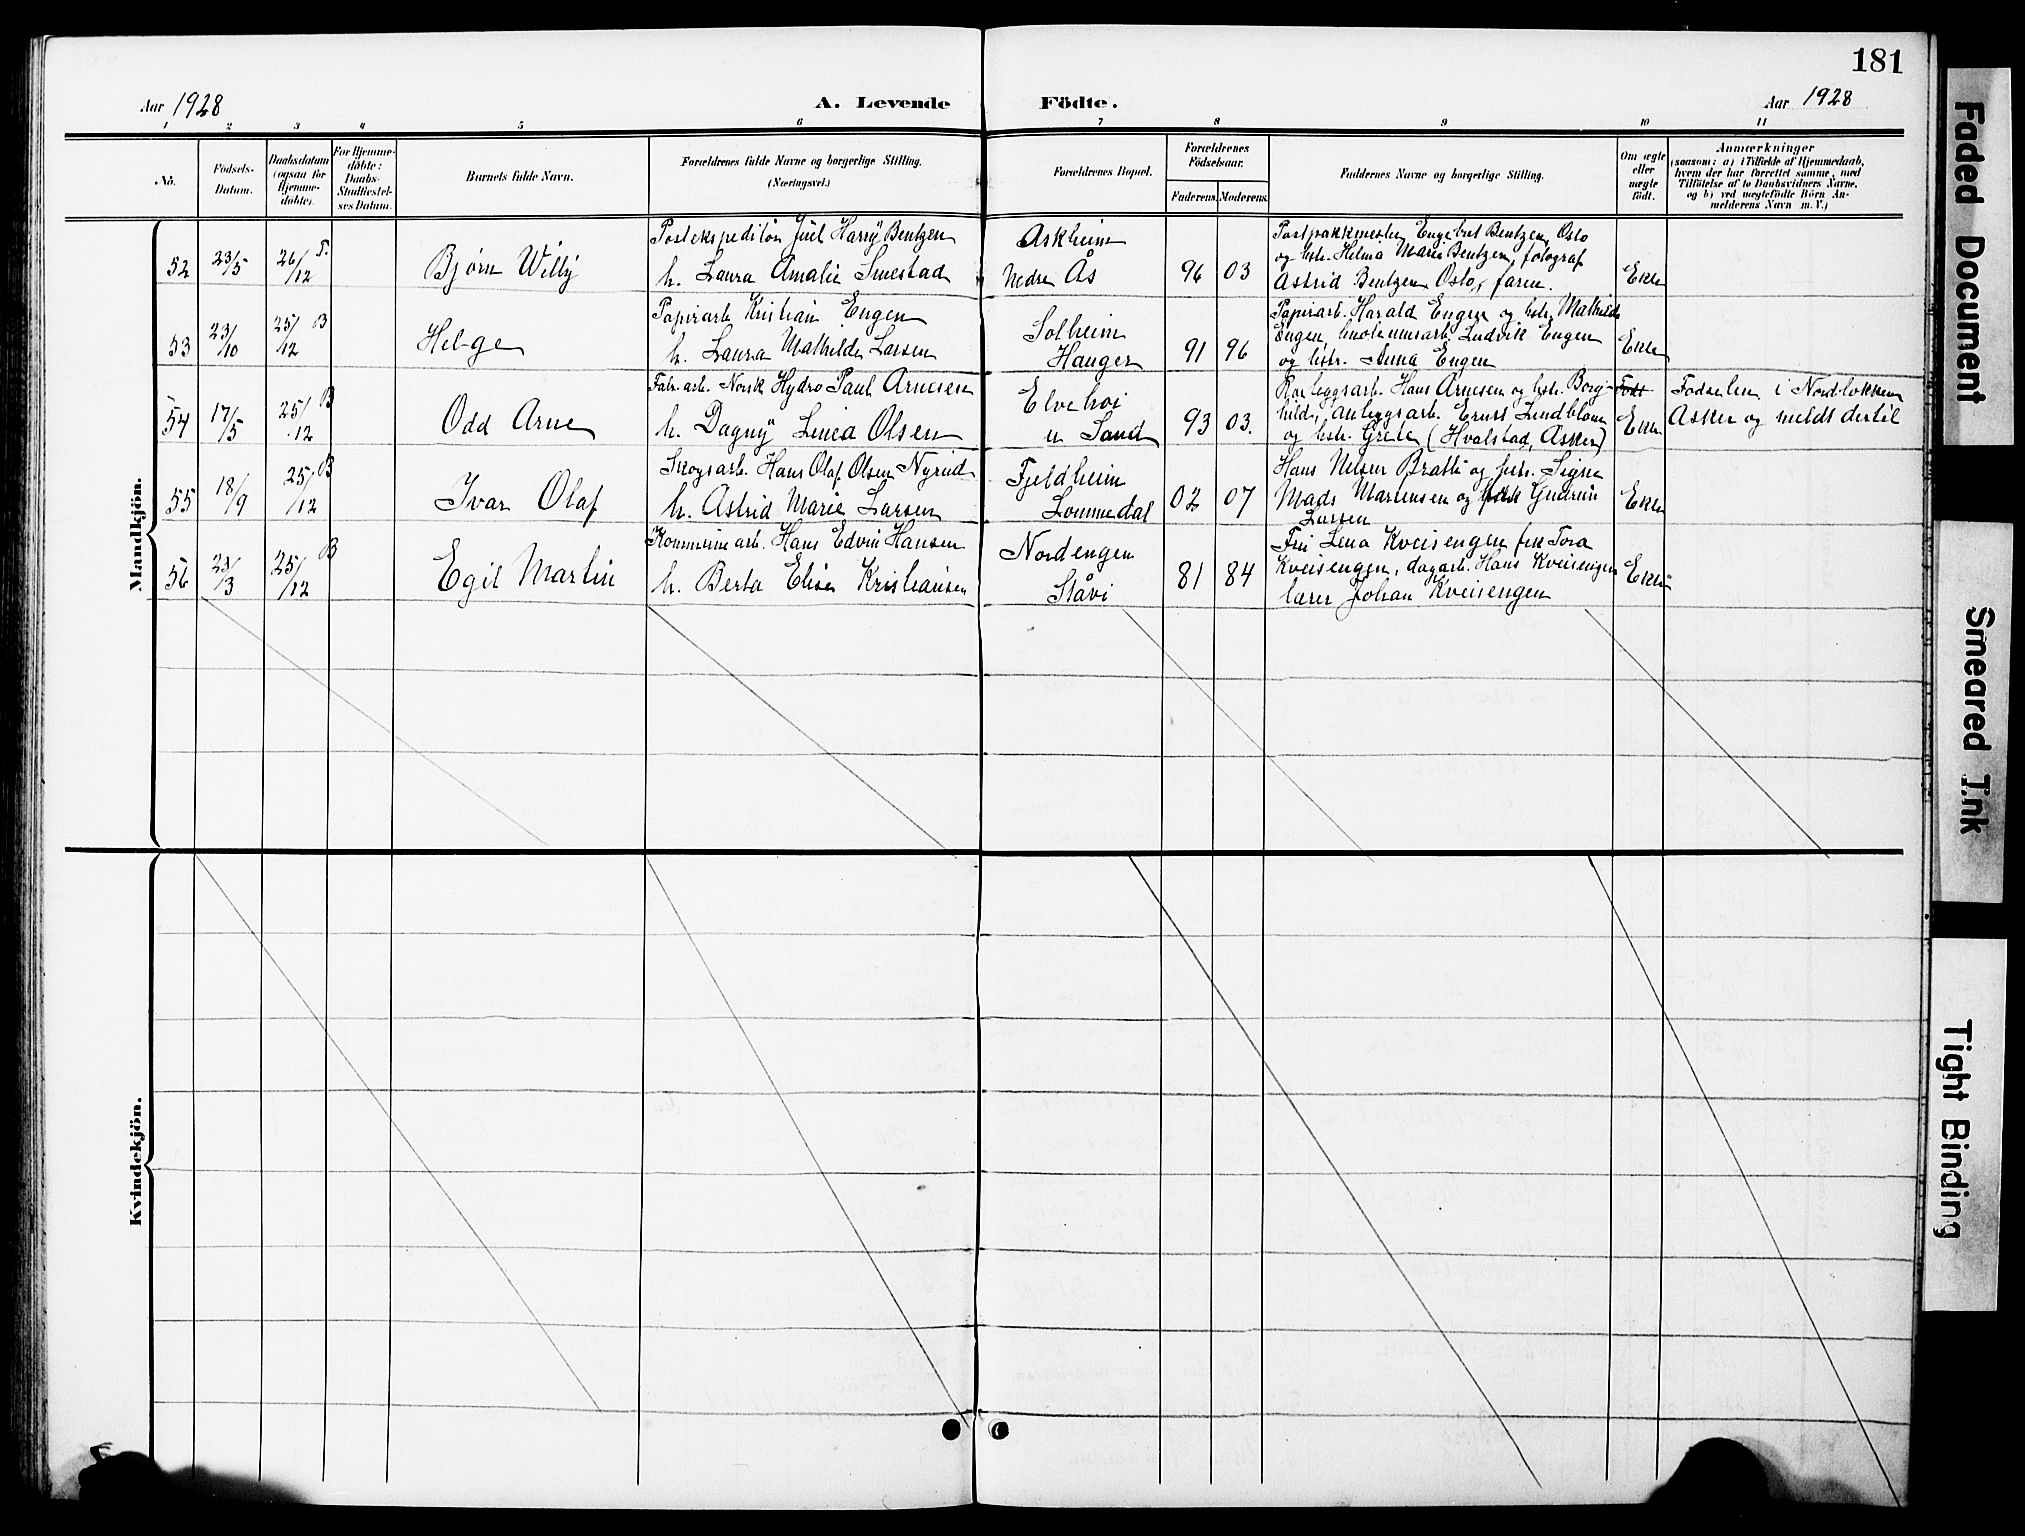 181
Aar 1928
A. Levende Födte.
Aar 1928
1 2 3 4 5 6 7 8 9 10 11
No.
Födsels-
Datum.
Daabsdatum
(ogsaa for
Hjemme-
döbte).
For Hjemme-
döbte:
Daabs-
Stadfæstel-
ses Datum.
Barnets fulde Navn.
Forældrenes fulde Navne og borgerlige Stilling.
(Næringsvei.)
Forældrenes Bopæl.
Forældrenes
Födselsaar.
Faderens. Moderens.
Faddernes Navne og borgerlige Stilling.
Om ægte
eller
uægte
födt.
Anmærkninger
(saasom: a) i Tilfælde af Hjemmedaab,
hvem der har forrettet samme, med
Tilföielse af to Daabsvidners Navne,
og b) ved uegtefödte Börn An-
melderens Navn m. V.)
Mandkjön.
52 23/5 26/12 T.
Bjørn Willy
Postekspeditør Juel Harry Bentzen
h. Laura Amalie Smestad
Askheim
Nedre Ås
96 03
Postpakkmester Engebret Bentzen, Oslo
og hstr. Helma Marie Bentzen, fotograf
Astrid Bentzen Oslo, faren.
Ekte
53 23/10 25/12 B
Helge
Papirarb. Kristian Engen
h. Laura Mathilde Larsen
Solheim
Hauger
91 96
Papirarb. Harald Engen og hstr. Mathilde
Engen, Ludvik Engen
og hstr. Anna Engen
Ekte
54 17/5 25/12 B
Odd Arne
Fabr. arb. Norsk Hydro Paul Arnesen
h. Dagny Linea Olsen
Elvehøi
n Sand
93 03.
Rørleggsarb. Hans Arnesen og hstr. Borg-
hild, anleggsarb. Ernst Lindblom
og hstr. Grete (Hvalstad, Asker)
Født
Ekte
Fødselen i Nordløkken
Asker og meldt dertil
55 18/9 25/12 B
Ivar Olaf
Skogsarb. Hans Olaf Olsen Nyrud
h. Astrid Marie Larsen
Fjeldheim
Lommedal
02 07
Hans Nilsen Bratli og hstr. Signe
Mads Martinsen og frk Gudrun
Larsen
Ekte
56 23/3 25/12 B
Egil Martin
Kommunearb. Hans Edvin Hansen
h. Berta Elise Kristiansen
Nordengen
Ståvi
81 84
Fru Lena Kveisengen frk Tora
Kveisengen, dagarb. Hans Kveisengen
lærer Johan Kveisengen
Ekte
Kvindekjön.
Faded Document
Smeared Ink
Tight Binding